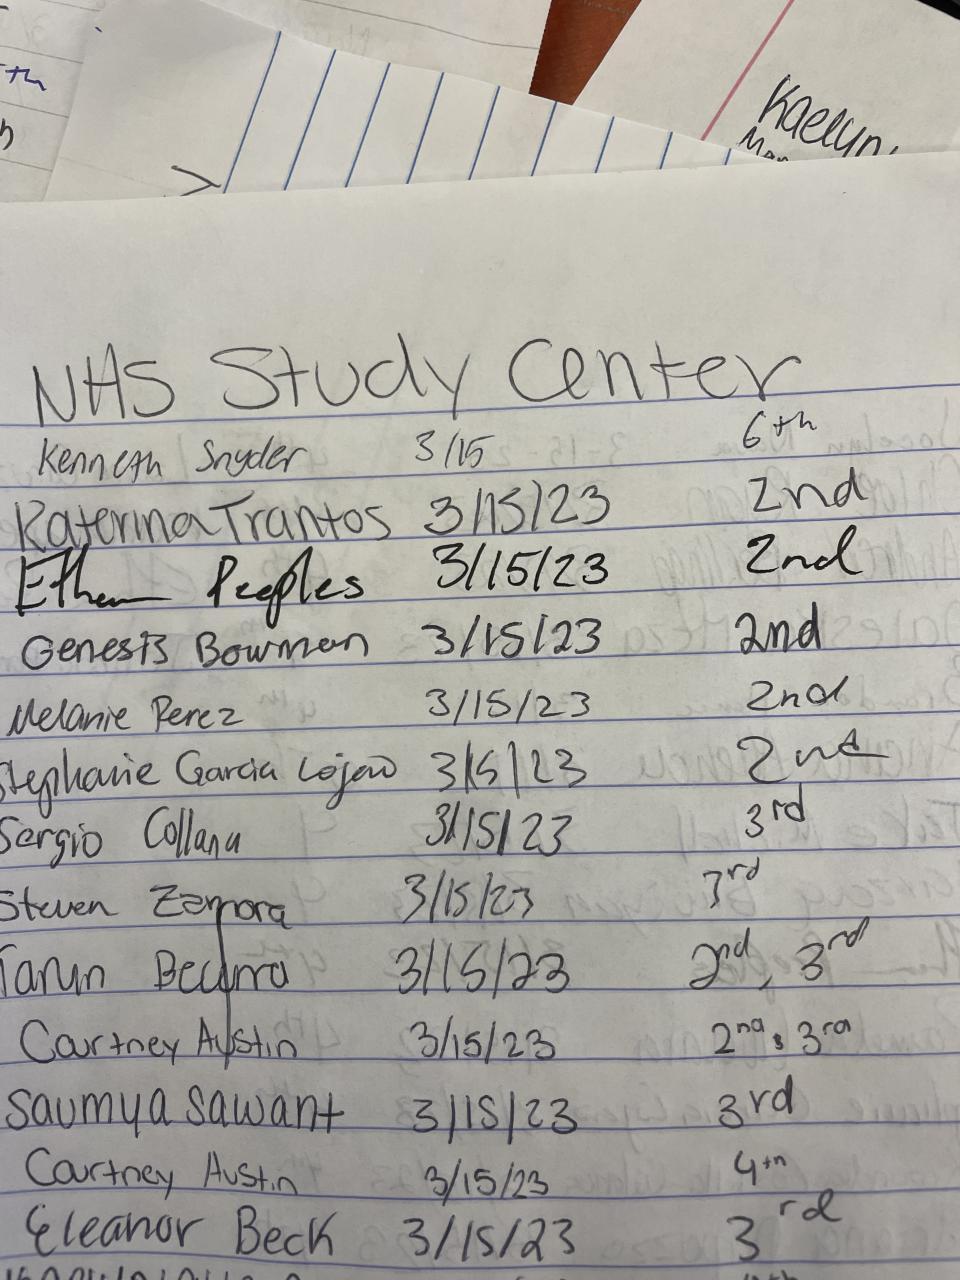 th
Kaelyn
NHS Study Center
Kenneth Snyder 3/15 6th
Katerina Trantos 3/15/23 2nd
Ethan Peeples 3/15/23 2nd
Genesis Bowman 3/15/23 2nd
Melanie Perez 3/15/23 2nd
Stephanie Garcia Lojano 3/15/23 2nd
Sergio Collana 3/15/23 3rd
Steven Zamora 3/15/23 3rd
Tarun Becerra 3/15/23 2nd, 3rd
Courtney Austin 3/15/23 2nd & 3rd
Saumya Sawant 3/15/23 3rd
Courtney Austin 3/15/23 4th
Eleanor Beck 3/15/23 3rd